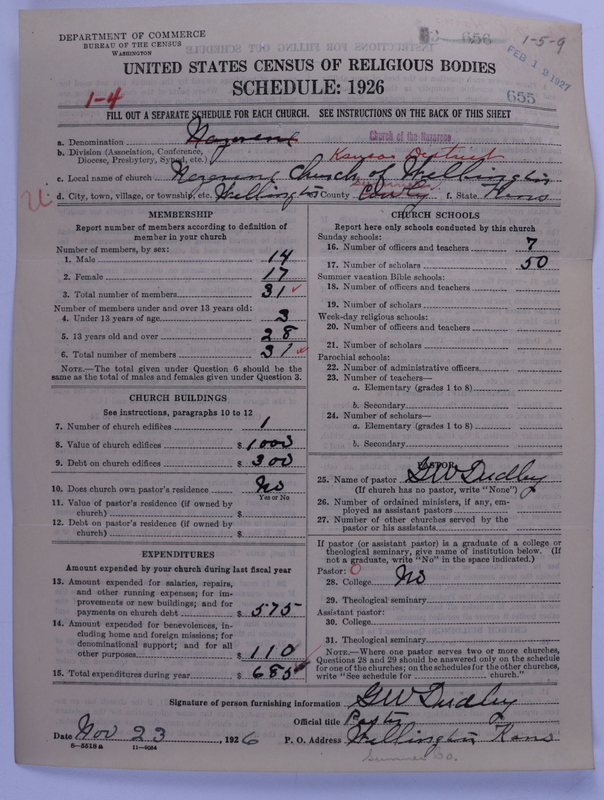 DEPARTMENT OF COMMERCE
BUREAU OF THE CENSUS
WASHINGTON
656
1-5-9
FEB 12 1927
UNITED STATES CENSUS OF RELIGIOUS BODIES
SCHEDULE: 1926
1-4
655
FILL OUT A SEPARATE SCHEDULE FOR EACH CHURCH. SEE INSTRUCTIONS ON THE BACK OF THIS SHEET
a. Denomination Nazarene Church of the Nazarene
b. Division (Association, Conference, Diocese, Presbytery, Synod, etc.) Kansas District
c. Local name of church Nazarene Church of Wellington
d. City, town, village, or township, etc. Wellington County Cowly f. State Kans
MEMBERSHIP
Report number of members according to definition of
member in your church
Number of members, by sex:
1. Male 14
2. Female 17
3. Total number of members 31
Number of members under and over 13 years old:
4. Under 13 years of age 3
5. 13 years old and over 28
6. Total number of members 31
NOTE.—The total given under Question 6 should be
same as the total of males and females given under Question 3.
CHURCH BUILDINGS
See instructions, paragraphs 10 to 12
7. Number of church edifices 1
8. Value of church edifices $ 1000
9. Debt on church edifices $ 300
10. Does church own pastor's residence No
Yes or No
11. Value of pastor's residence (if owned by
church) $
12. Debt on pastor's residence (if owned by
church) $
EXPENDITURES
Amount expended by your church during last fiscal year
13. Amount expended for salaries, repairs,
and other running expenses; for im-
provements or new buildings; and for
payments on church debt $ 575
14. Amount expended for benevolences, in-
cluding home and foreign missions; for
denominational support; and for all
other purposes $ 110
15. Total expenditures during year $ 685
CHURCH SCHOOLS
Report here only schools conducted by this church
Sunday schools:
16. Number of officers and teachers 7
17. Number of scholars 50
Summer vacation Bible schools:
18. Number of officers and teachers
19. Number of scholars
Week-day religious schools:
20. Number of officers and teachers
21. Number of scholars
Parochial schools:
22. Number of administrative officers
23. Number of teachers—
a. Elementary (grades 1 to 8)
b. Secondary
24. Number of scholars—
a. Elementary (grades 1 to 8)
b. Secondary
PASTOR
25. Name of pastor G W Dudley
(If church has no pastor, write "None")
26. Number of ordained ministers, if any, em-
ployed as assistant pastors
27. Number of other churches served by the
pastor or his assistants
If pastor (or assistant pastor) is a graduate of a college or
theological seminary, give name of institution below. (If
not a graduate, write "No" in the space indicated.)
Pastor: 0
28. College No
29. Theological seminary
Assistant pastor:
30. College
31. Theological seminary
NOTE.—Where one pastor serves two or more churches,
Questions 28 and 29 should be answered only on the schedule
for one of the churches; on the schedules for the other churches,
write "See schedule for church."
Signature of person furnishing information G W Dudley
Official title Pastor
Date Nov 23, 1926 P. O. Address Wellington Kans
8-5518a 11-9064
Sumner Co.